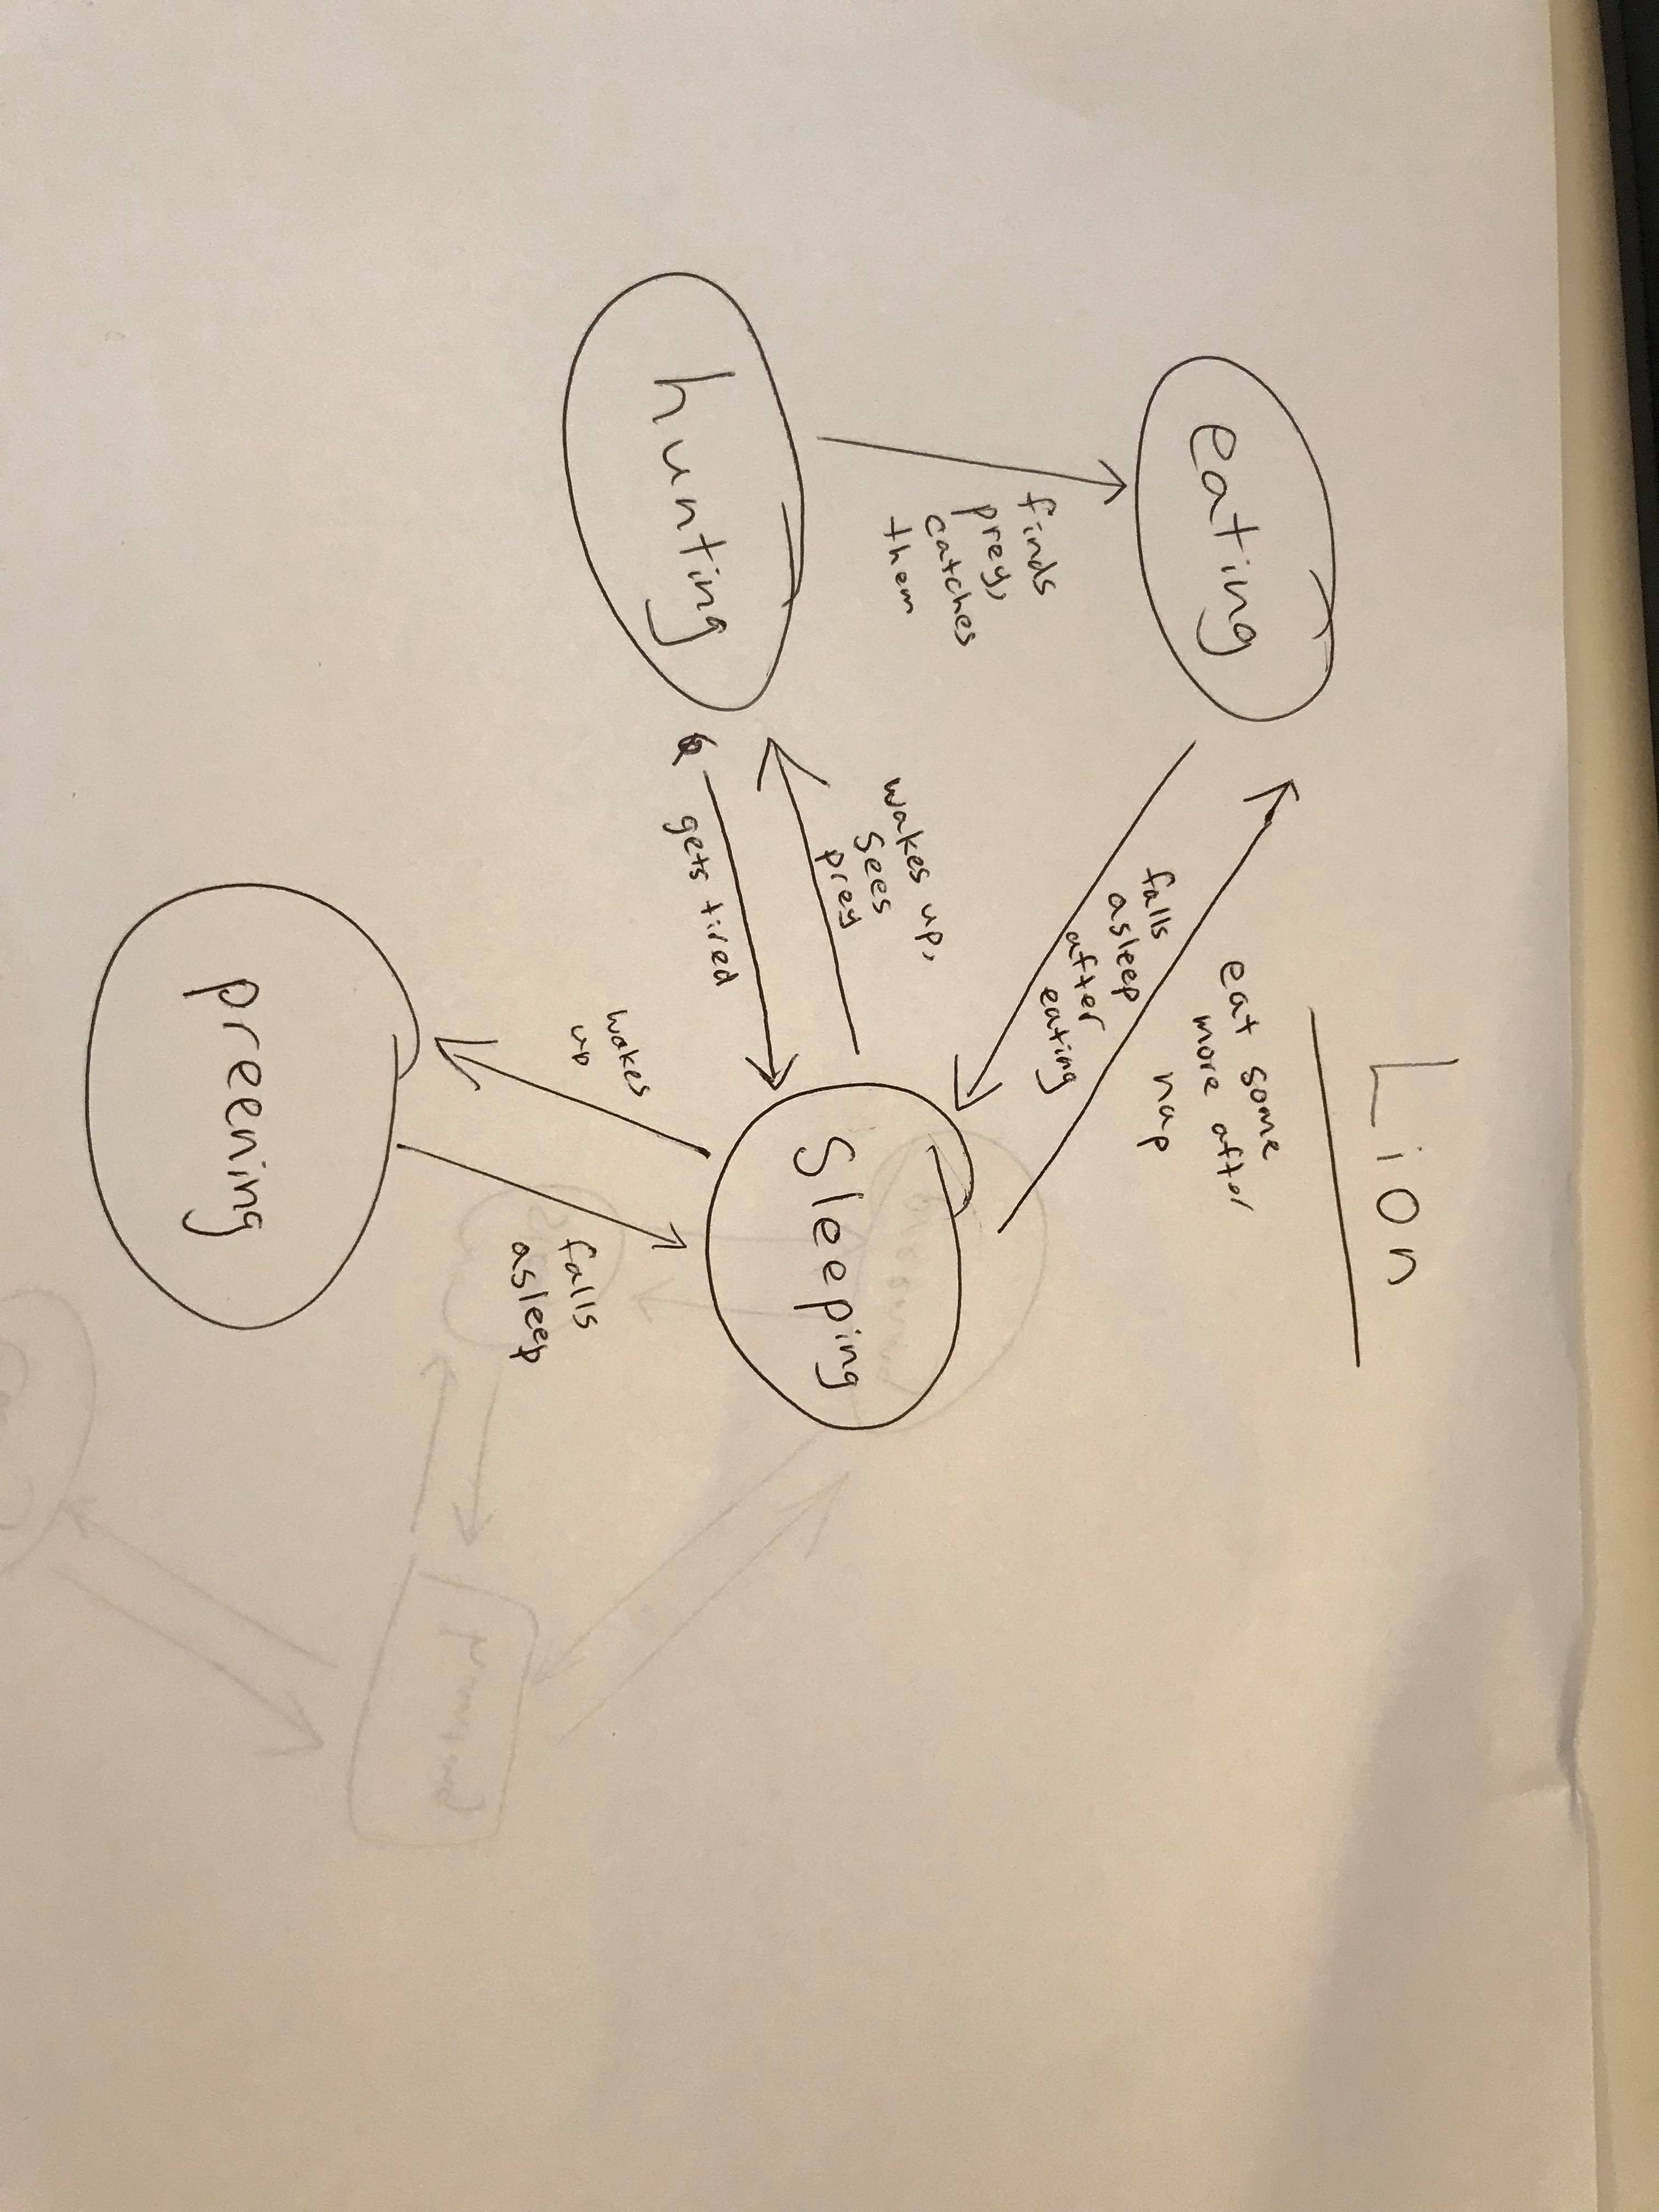 Lion
eating
eat some
more after
nap
falls
asleep
after
eating
finds
prey,
catches
them
wakes up,
sees
prey
Sleeping
hunting
gets tired
wakes
up
falls
asleep
preening